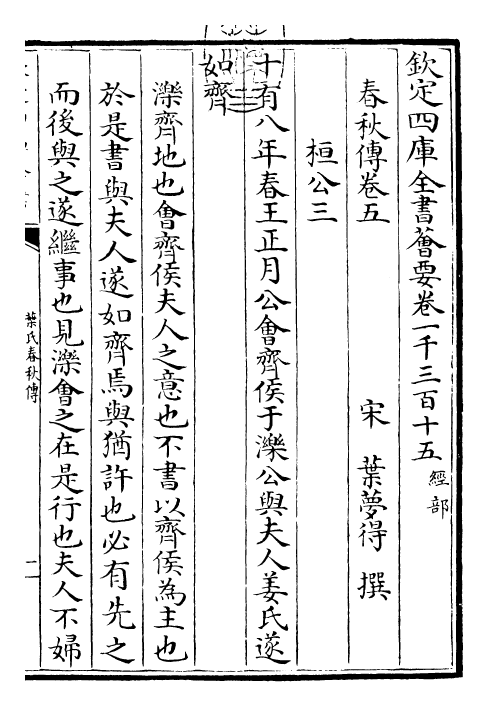 欽定四庫全書薈要卷一千三百十五 經部
春秋傳卷五
宋 葉夢得 撰
桓公三
十有八年春王正月公會齊侯于濼公與夫人姜氏遂
如齊
濼齊地也會齊侯夫人之意也不書以齊侯為主也
於是書與夫人遂如齊焉與猶許也必有先之
而後與之遂繼事也見濼會之在是行也夫人不婦
葉氏春秋傳